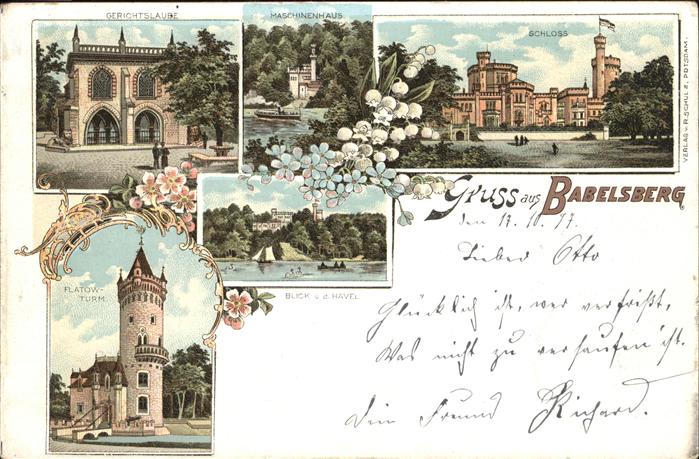 GERICHTSLAUBE
MASCHINENHAUS
SCHLOSS
VERLAG v. R. SCHULZ, POTSDAM.
Gruss aus BABELSBERG
den 17. 10. 97
Lieber Otto
FLATOW-
TURM.
BLICK v. d. HAVEL
Glücklich ist, wer verfrißt,
Was nicht zu versaufen ist.
Dein Freund Richard.